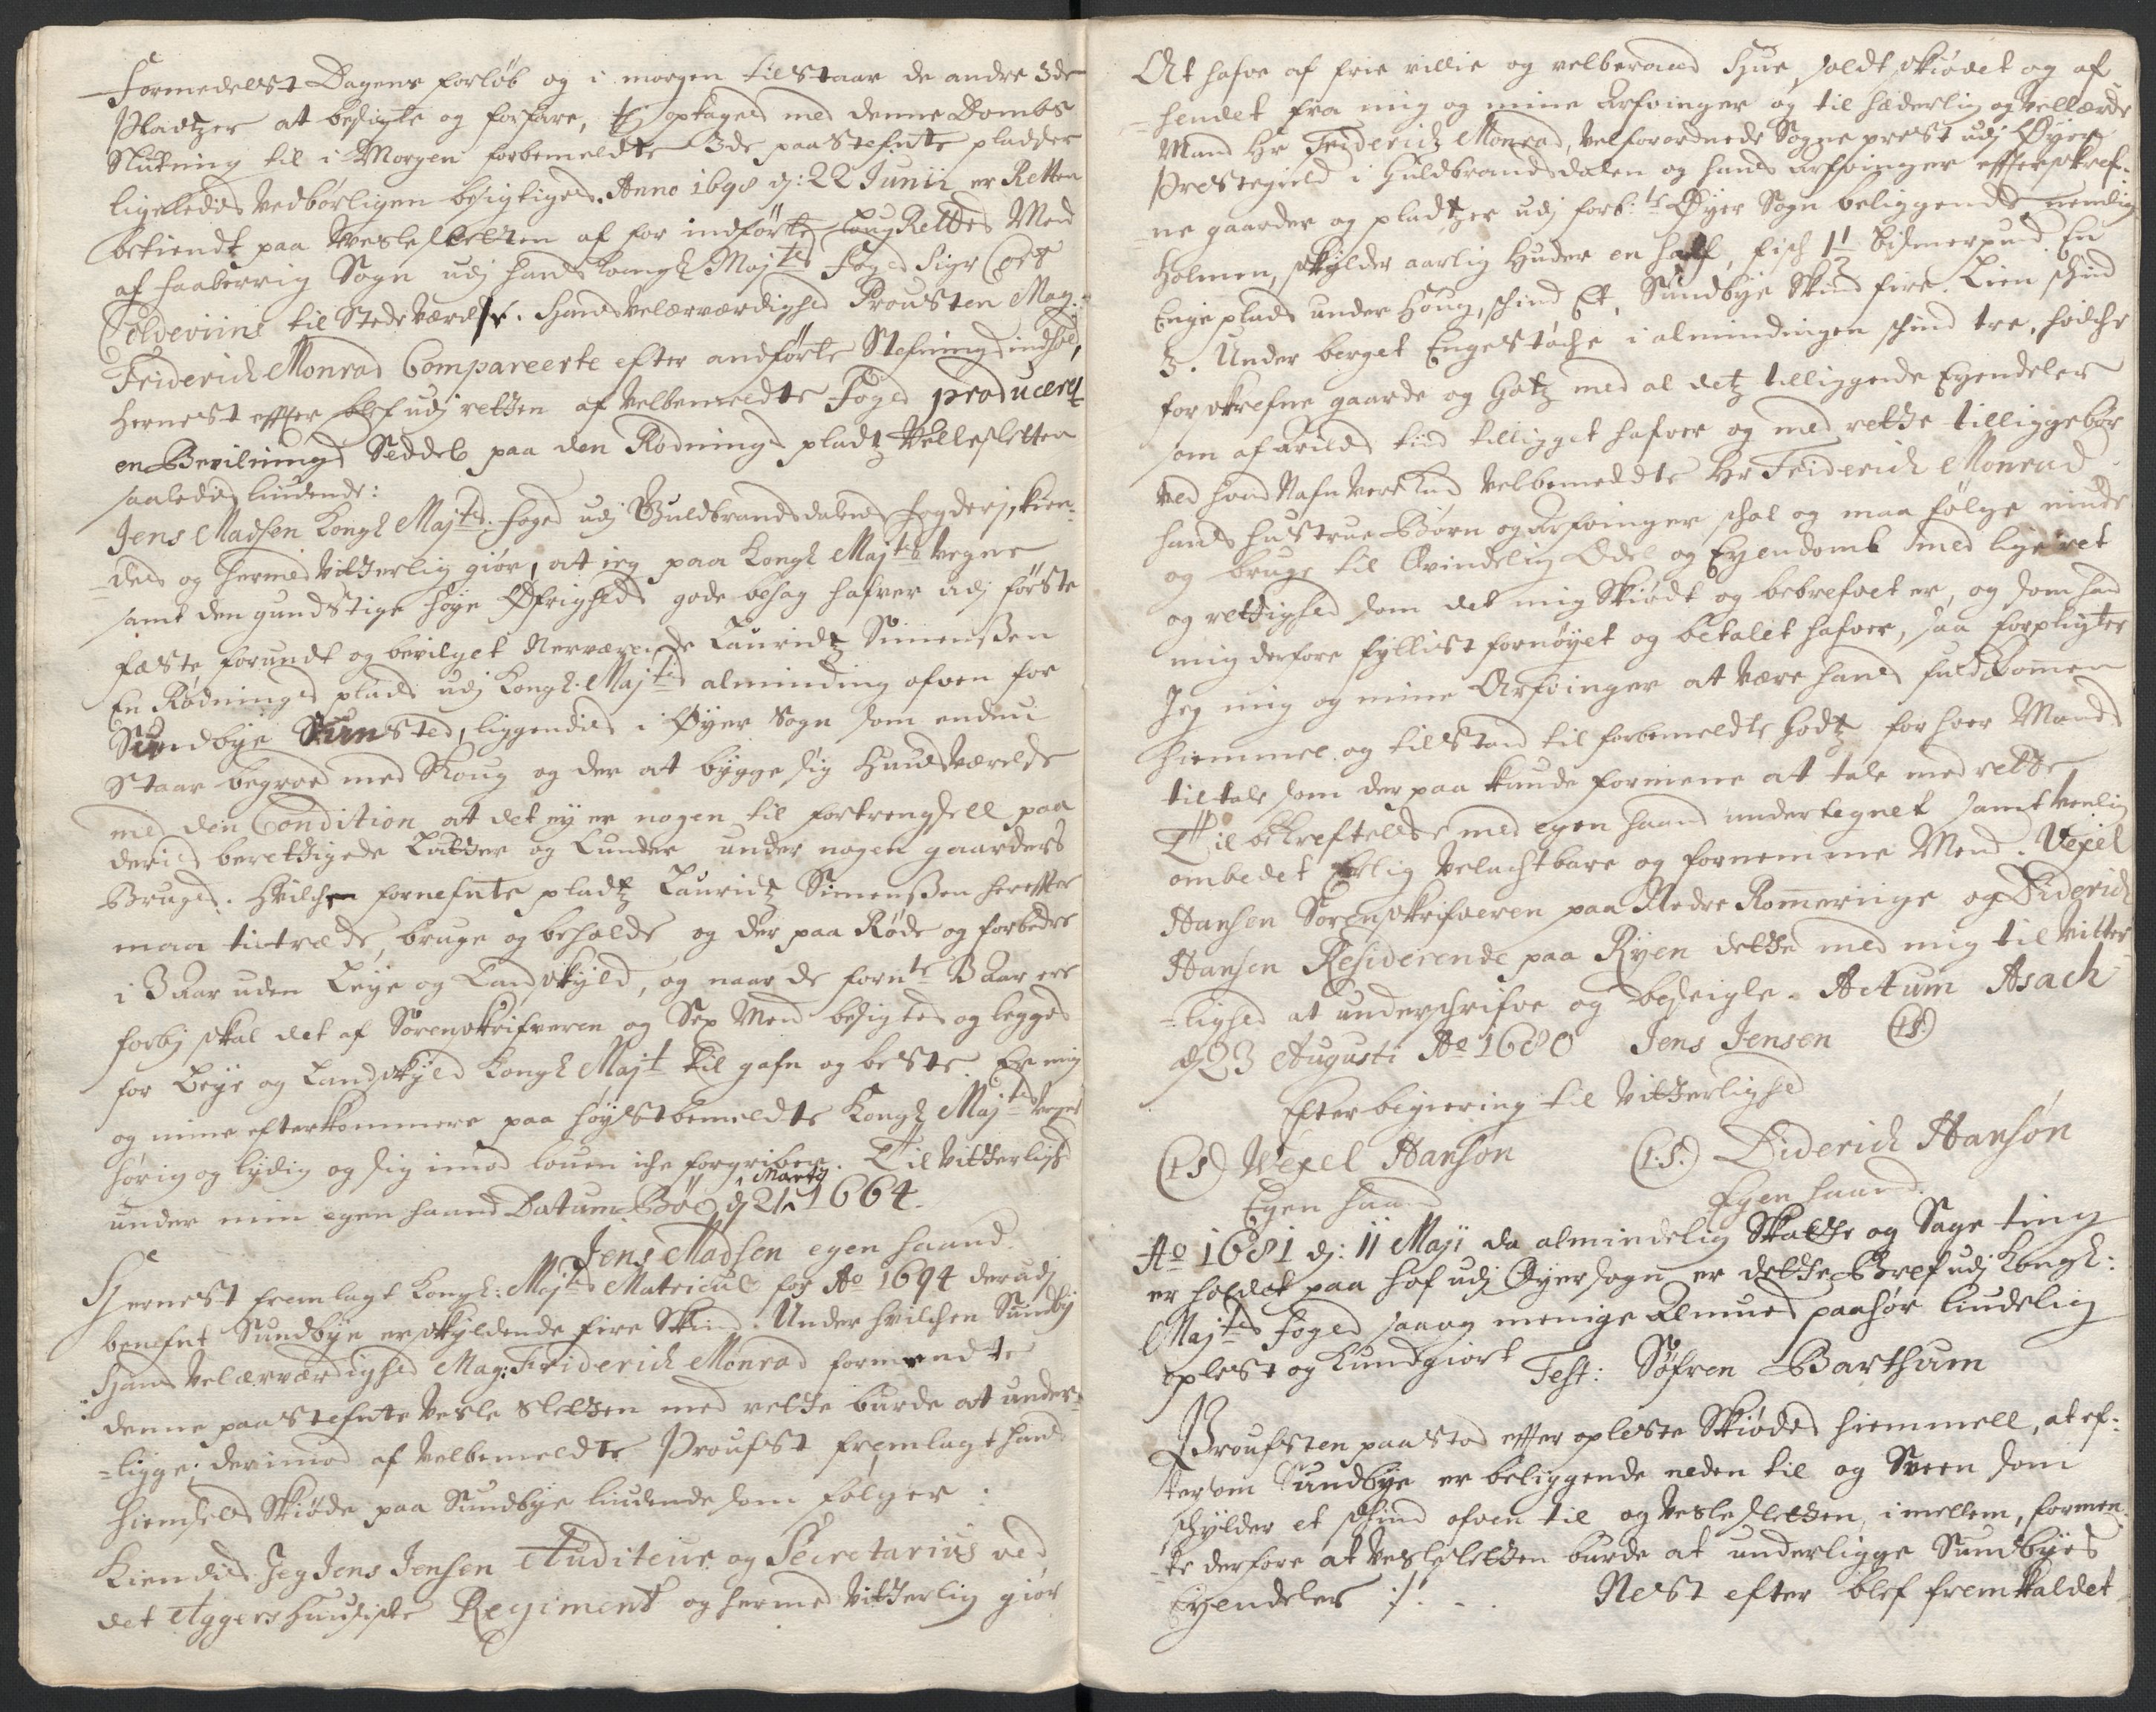 Formedelst Dagens forløb og i morgen tilstaar de andre 3de
Pladtzer at besigte og forfare, er optagen med denne Dombs
Slutning til i Morgen forbemeldte 3de paastefnte pladder
ligeledis vedbørligen besigtiges. Anno 1698 d: 22 Junii er Retten
betiendt paa Vesle Sletten af for indførte Laug Rettes Mend
af Faaberrig Sogn udj hans Kongl Maj:ts Foged Sigr Cort
Coldeviins til Stede Værelse. Hands velærværdighed Prousten Mag:
Friderich Monrad Compareerte efter andførte Stefnings indhold,
hernest effter blef udj retten af velbemeldte Foged producerit
en Bevilnings Seddel paa den Rødnings pladtz Vesle Sletten
saaledis liudende:
Jens Madsen Kongl Maj:ts foged udj Guldbrandsdalens fogderj, kien-
-des og hermed vitterlig giør, at ieg paa Kongl Maj:ts vegne
samt den gundstige høye Øfrigheds gode behag hafver udj første
fæste, forundt og bevilget Nerværende Lauridtz Simenssen
En Rødninges plads udj Kongl. Maj:ts alminding ofven for
Sundbye Kunsted, liggendis i Øyer Sogn som endnu
Staar begroed med Skoug og der at bygge sig Huusværelse
med den Condition at det ey er nogen til fortrengsell paa
deris berettigede Lotter og Lunder under nogen gaarders
Bruges. Hvilchen fornefnte pladtz Lauridtz Simenssen hereffter
maa tiltræde, bruge og beholde og der paa Røde og forbedre
i 3 Aar uden Leye og Landskyld, og naar de forn:te 3 Aar ere
forbj skal det af Sorenskrifveren og Sex Mend besigtes og legges
for Leye og Landskyld Kongl Maj:t til gafn og beste. Er mig
og mine efterkommere paa høystbemeldte Kongl Maj:ts vegne
hørig og lydig og sig imod louen iche forgribe. Til vitterlighed
under min egen haand Datum Bøe d 21 Martj 1664.
Jens Madsen egen haand.
Hernest fremlagt Kongl: Maj:ts Matricul for Ao 1694 derudj
benefnt Sundbye er skyldende fire Skind. Under hvilchen Sundby
Hans Velærværdighed Mag: Friderich Monrad formendte
denne paastefnte Vesle Sletten med rette burde at under-
-ligge; derimod af velbemeldte Proufst fremlagt hands
hiemsels Skiøde paa Sundbye liudende som følger:
Kiendis Jeg Jens Jensen Auditeur og Secretarius ved
det Aggershuusiske Regiment og hermed vitterlig giør
At hafve af frie villie og velberaaed Hue, soldt, skiødet og af-
-hendet fra mig og mine Arfvinger og til hæderlig og vellærde
Mand Hr Friderich Monrad, velforordnede Sogneprest udj Øyer
Prestegield i Guldbrandsdalen og hands Arfvinger effterskref-
-ne gaarder og pladtzer udj forb:te Øyer Sogn beliggende nemlig
Holmen, skylder aarlig Huder en half, fisch 1½ Bismerpund. En
Enge plads under Houg, schind Et, Sundbye Skind fire. Lien schind
3. Under berget Engestøche i almindingen schind tre, hvilche
forskrefne gaarde og Gotz med al detz tilliggende Eyendeler
som af Arilds tiid tilligget hafver og med rette tilligge bør
ved hvad Nafn vere kand velbemeldte Hr Friderich Monrad
hands hustrue Børn og Arfvinger schal og maa følge, niude
og bruge til Evindelig Odel og Eyendomb med lige ret
og rettighed som det mig Skiødt og bebrefvet er, og som hand
mig derfore fyllist fornøyet og betalet hafver, saa forpligter
Jeg mig og mine Arfvinger at være hands fuldkomen
hiemmel og tilstand til forbemeldte Godtz for hver Mands
tiltale som der paa kunde formene at tale med rette
Til bekreftelse med egen haand undertegnet samt venlig
ombedet Erlig velachtbare og fornemme Mend. Vexel
Hansen Sorenskrifveren paa Nedre Romeringe og Diderich
Hansen Residerende paa Ryen dette med mig til vitter-
-lighed at underschrifve og beseigle. Actum Asach
d 23 Augusti Ao 1680 Jens Jensen (LS)
Efter begiering til vitterlighed
(LS) Wexel Hansøn (L:S.) Diderich Hansøn
Egen haand Egen haand.
Ao 1681 d: 11 Maji da almindelig Skatte og Sage ting
er holdet paa Hof udj Øyer sogn er dette Bref udj Kongl:
Maj:ts Foged saa og menige Almues paahør liudelig
oplæst og kundgiort Test: Søfren Barthum
Proufsten paastod effter oplæste Skiødes hiemmell, at ef-
ter som Sundbye er beliggende neden til og Sveen som
schylder et schind ofven til og Vesle Sletten, imellem, formen-
-te derfore at Veslesletten burde at underligge Sundbyes
Eyendeler ./. - . Nest efter blef fremkaldet